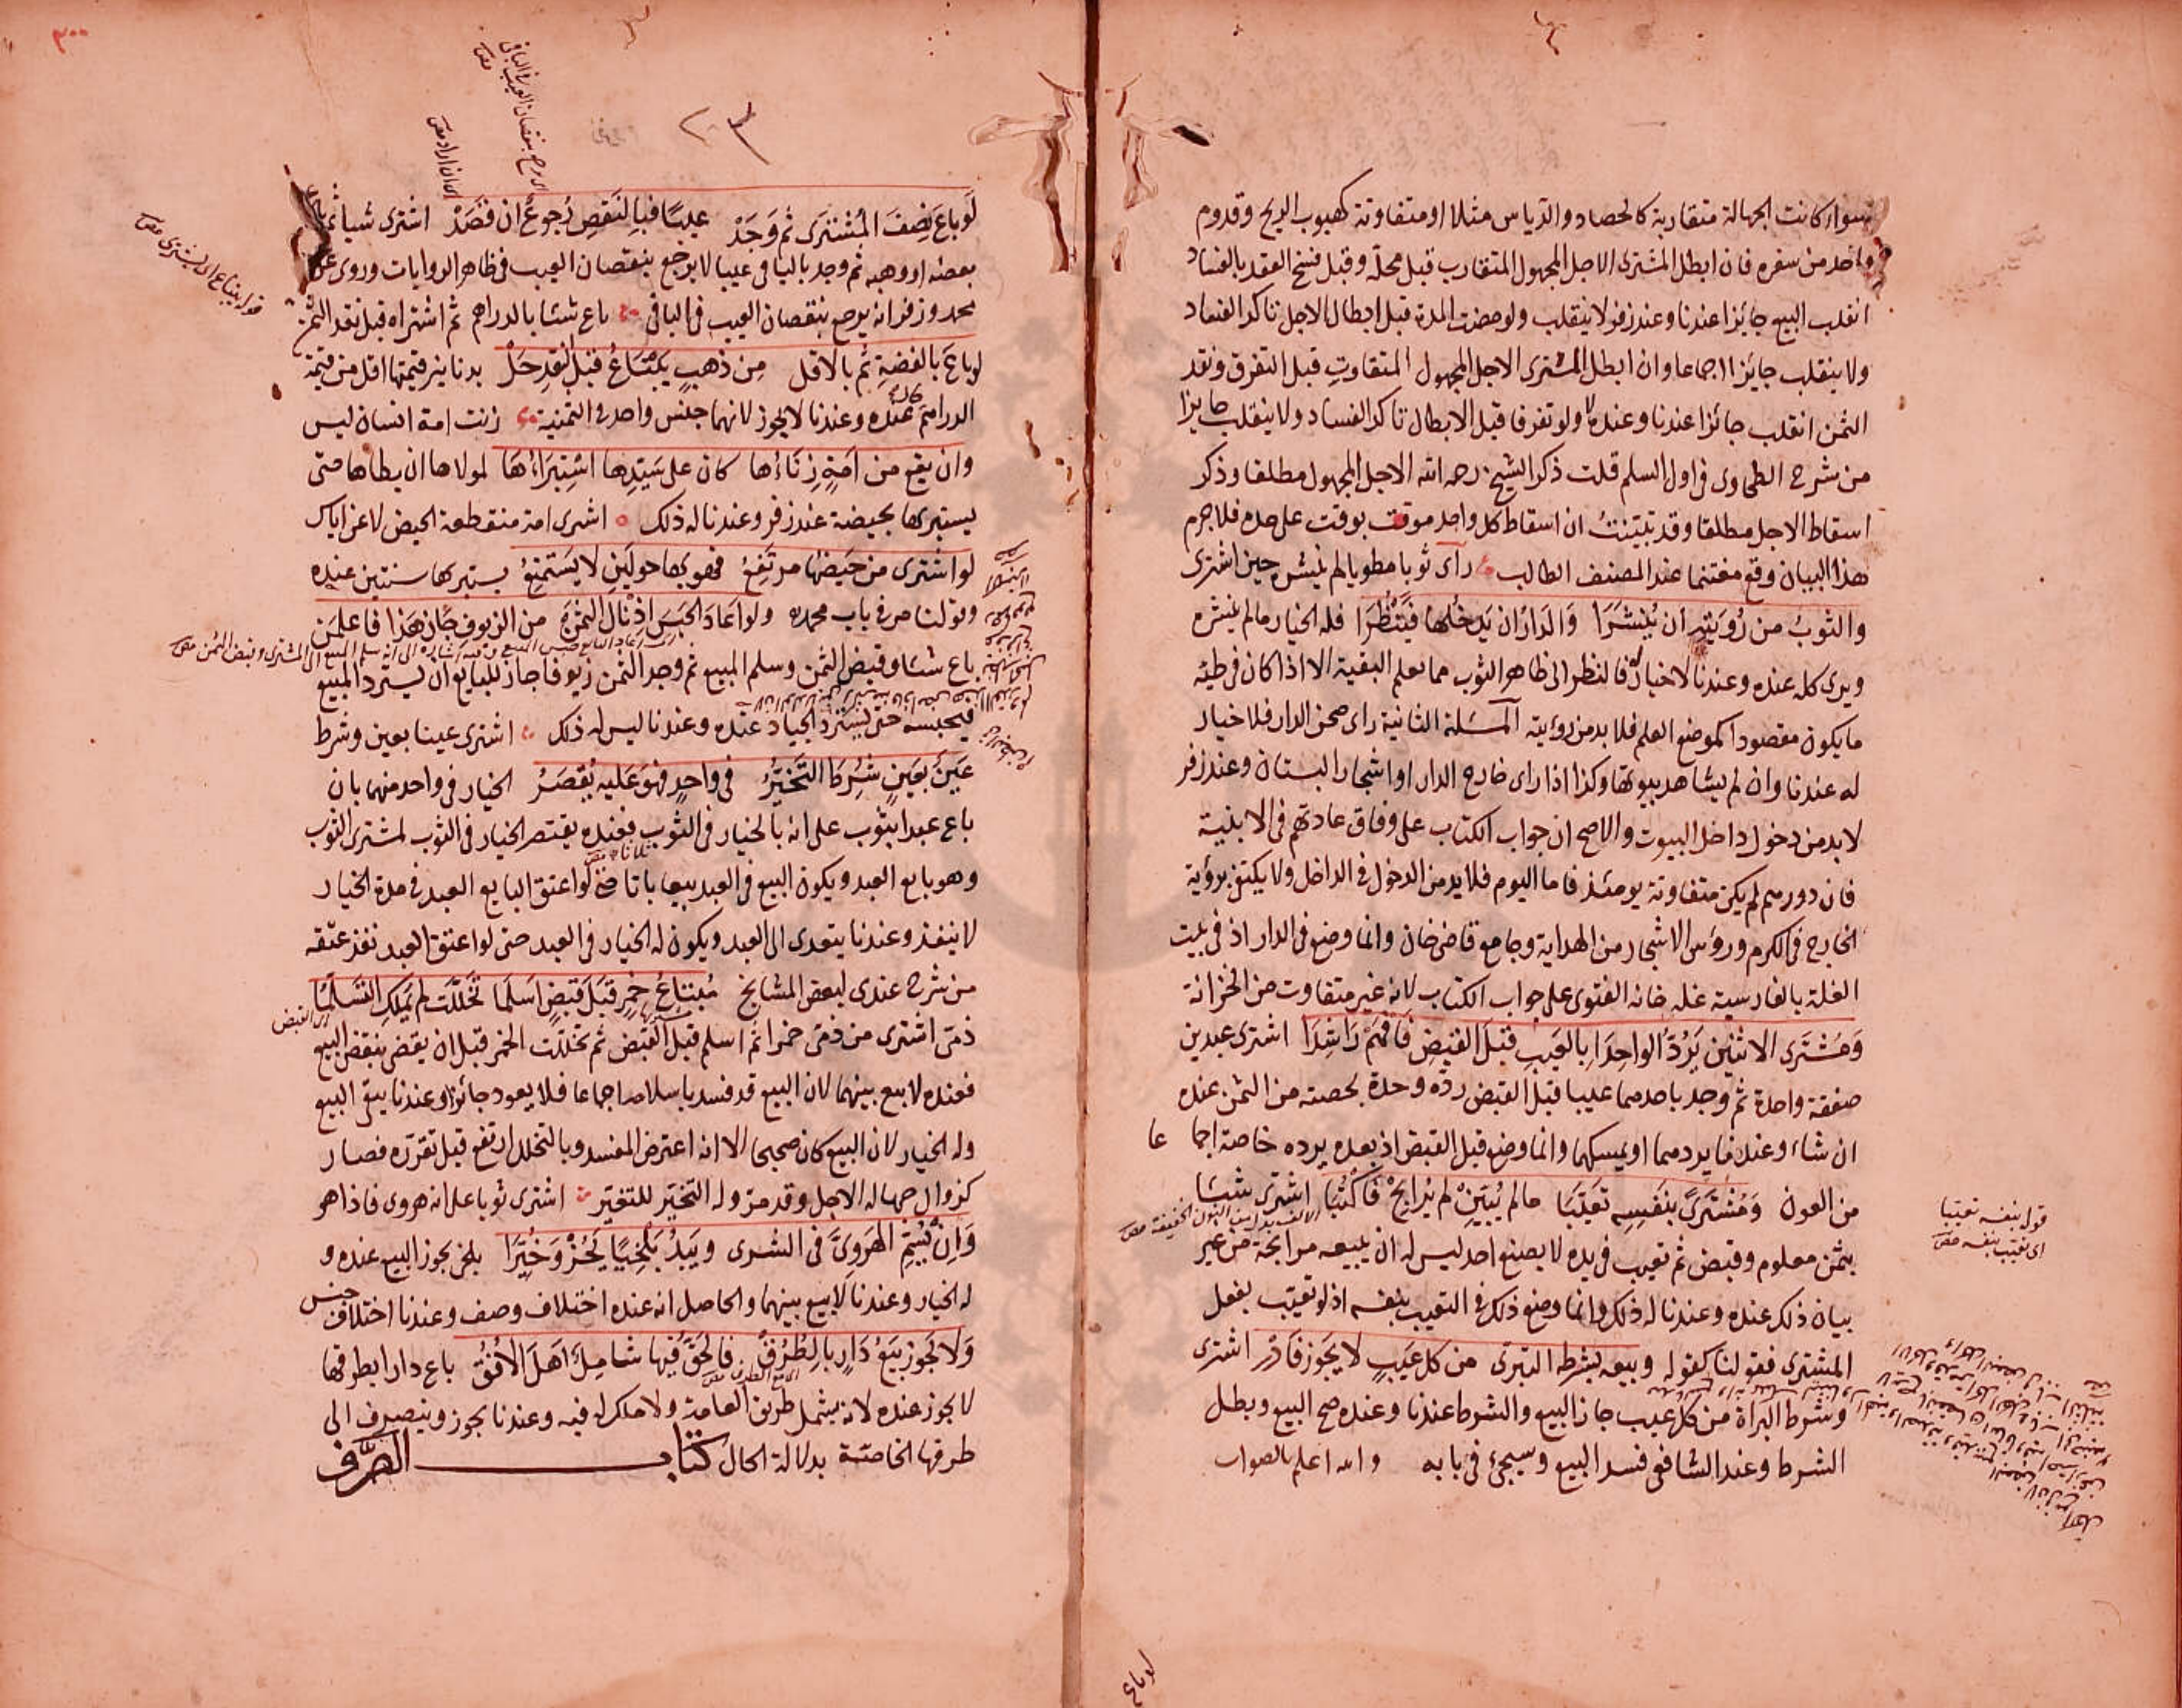 سواء كانت الجهالة متقاربة كالحصاد والدياس مثلا او متفاوتة كهبوب الريح وقدوم
واحد من سفره فان ابطل المشترى الاجل المجهول المتقارب قبل محله وقبل فسخ العقد بالفساد
انقلب البيع جائزا عندنا وعند زفر لا ينقلب ولو مضت المدة قبل ابطال الاجل تاكد الفساد
ولا ينقلب جايزا اجماعا وان ابطل المشترى الاجل المجهول المتفاوت قبل التفرق ونقد
الثمن انقلب جائزا عندنا وعنده لا ولو تفرقا قبل الابطال تاكد الفساد ولا ينقلب جايزا
من شرح الطحاوى فى اول السلم قلت ذكر الشيخ رحمه الله الاجل المجهول مطلقا وذكر
اسقاط الاجل مطلقا وقد تبينت ان اسقاط كل واحد موقت بوقت على حده فلا جرم
هذا البيان وقع مغتنما عند المصنف الطالب راى ثوبا مطويا لم ينشر حين اشترى
والثوبُ من رُويَتِه ان يُنْشَرَا وَالدَارُ ان يَدخُلها فَيَنْظُرَا فله الخيار مالم ينشره
ويرى كله عنده وعندنا لا خيار له فالنظر الى ظاهر الثوب مما يعلم البقية الا اذا كان فى طيه
ما يكون مقصودا كموضع العلم فلا بد من رؤيته المسئلة الثانية راى صحن الدار فلا خيار
له عندنا وان لم يشاهد بيوتها وكذا اذا راى خارج الدار او اشجار البستان وعند زفر
لا بد من دخول داخل البيوت والاصح ان جواب الكتاب على وفاق عادتهم فى الابنية
فان دورهم لم يكن متفاوتة يومئذ فاما اليوم فلا بد من الدخول فى الداخل ولا يكتفى برؤية
الخارج فى الكرم ورؤس الاشجار من الهداية وجامع قاضى خان وانما وضع فى الدار اذ فى بيت
الغلة بالفارسية غله خانه الفتوى على جواب الكتاب لانه غير متفاوت من الخزانة
وَمُشتَرى الاثنَين يَرُدّ الواحِدَا بالعَيبِ قبلَ القبضِ فَافهَمْ رَاشِدَا اشترى عبدين
صفقة واحدة ثم وجد باحدهما عيبا قبل القبض رده وحده بحصته من الثمن عنده
ان شاء وعندنا يردهما او يمسكهما وانما وضع قبل القبض اذ بعده يرده خاصة اجما عا
من العون وَمُشْتَرًى بنَفسِه تعَيّبَا مالم يُبَيّنْ لم يُرابحْ فَاكْتُبَا اشترى شيئا
بثمن معلوم وقبض ثم تعيب فى يده لا بصنع احد ليس له ان يبيعه مرابحة من غير
بيان ذلك عنده وعندنا له ذلك وانما وضع ذلك فى التعيب بنفسه اذ لو تعيب بفعل
المشترى فقولنا كقوله وبيعه بشرط التبرى من كل عَيبٍ لا يَجوز فادر اشترى
وشرط البراة من كل عيب جاز البيع والشرط عندنا وعنده صح البيع وبطل
الشرط وعند الشافعى فسد البيع وسيجئ فى بابه والله اعلم بالصواب
قوله بنفسه تعيبا
اى تعيب بنفسه
لو باع
٢٠٣
٣٠٠
لَو باعَ نِصفَ المُشتَرَى ثم وَجَدْ عيبًا فبالنَقصِ رُجوعٌ ان قصَدْ اشترى شيأ ثم باع
بعضه او وهبه ثم وجد بالباقى عيبا لا يرجع بنقصان العيب فى ظاهر الروايات وروى عن
محمد وزفر انه يرجع بنقصان العيب فى الباقى باع شيئا بالدراهم ثم اشتراه قبل نقد الثمن
لو باعَ بالفضةِ ثم بالاقل مِن ذهبٍ يَبْتاعُ قبلَ النقدِ حَلْ بدنانير قيمتها اقل من قيمة
الدراهم عنده وعندنا لا يجوز لانهما جنس واحد فى الثمنية زنت امة انسان ليس
وان يقع من اَمَةٍ زِنَاءُها كان على سَيّدِها استِبرَاءُهَا لمولاها ان يطاها حتى
يستبرئها بحيضة عند زفر وعندنا له ذلك اشترى امة منقطعة الحيض لا عن اياس
لو اشترى من حَيضُها مرتَفِعُ فهو بها حولَين لا يَستَمتِعُ يستبرئها سنتين عنده
وقولنا مر فى باب محمد ولو اعَادَ الحَبسَ اذ نال الثمنْ من الزيوف جَازَ هَذا فاعلَمَن
باع شيئا وقبض الثمن وسلم المبيع ثم وجد الثمن زيوفا جاز للبايع ان يسترد المبيع
فيحبسه حتى يسترد الجياد عنده وعندنا ليس له ذلك اشترى عينا بعين وشرط
عَينٌ بعَينٍ شُرِطَ التَخيّرُ فى واحدٍ فهوَ عَليه يُقصَرُ الخيار فى واحد منهما بان
باع عبدا بثوب على انه بالخيار فى الثوب فعنده يقتصر الخيار فى الثوب لمشترى الثوب
وهو بايع العبد ويكون البيع فى العبد بيعا باتا حتى لو اعتق البايع العبد فى مدة الخيار
لا ينفذ وعندنا يتعدى الى العبد ويكون له الخيار فى العبد حتى لو اعتق العبد نفذ عتقه
من شرح عندى لبعض المشايخ مُبتاعُ خمرٍ قَبلَ قبضٍ اسلَما تخَلّلَت لم يَملِك التَسَلّمَا
ذمى اشترى من ذمى خمرا ثم اسلم قبل القبض ثم تخللت الخمر قبل ان يقضى بنقض البيع
فعنده لا بيع بينهما لان البيع قد فسد باسلامه اجماعا فلا يعود جائزا وعندنا يبقى البيع
وله الخيار لان البيع كان صحيحا الا انه اعترض المفسد وبالتخلل ارتفع قبل تقرره فصار
كزوال جهاله الاجل وقد مر وله التخير للتغير اشترى ثوبا على انه هروى فاذا هو
وَاِنْ يُسَمّ الهَروىَّ فى الشرى ويَبدُ بَلْخِيًا يَجُزْ وَخُيِّرَا بلخى يجوز البيع عنده و
له الخيار وعندنا لا بيع بينهما والحاصل انه عنده اختلاف وصف وعندنا اختلاف جنس
وَلا يَجُوز بَيعُ دَارٍ بالطُرُقْ فالحَقّ فيها شامِلٌ اَهلَ الاُفُقْ باع دارا بطرقها
لا يجوز عنده لانه يشمل طريق العامة ولا ملك له فيه وعندنا يجوز وينصرف الى
طرقها الخاصة بدلالة الحال كتاب الصَّرف